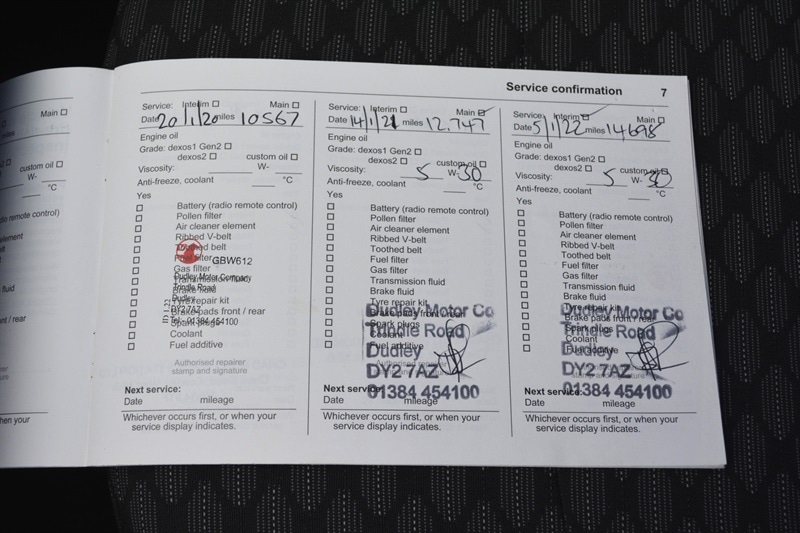 Service confirmation 7
Service: Interim Main
Date 20/1/20 miles 10567
Engine oil
Grade: dexos1 Gen2
dexos2 custom oil
Viscosity: W-
Anti-freeze, coolant °C
Yes
Battery (radio remote control)
Pollen filter
Air cleaner element
Ribbed V-belt
Toothed belt
Fuel filter
GBW612
Gas filter
Dudley Motor Company
Transmission fluid
Trindle Road
Brake fluid
Dudley
Tyre repair kit
DY2 7AZ
Brake pads front / rear
Tel: 01384 454100
Spark plugs
Coolant
Fuel additive
Authorised repairer
stamp and signature
Next service:
Date mileage
Whichever occurs first, or when your
service display indicates.
Service: Interim Main
Date 14/1/21 miles 12.747
Engine oil
Grade: dexos1 Gen2
dexos2 custom oil
Viscosity: 5 W-30
Anti-freeze, coolant °C
Yes
Battery (radio remote control)
Pollen filter
Air cleaner element
Ribbed V-belt
Toothed belt
Fuel filter
Gas filter
Transmission fluid
Brake fluid
Tyre repair kit
Dudley Motor Co
Brake pads front / rear
Spark plugs
Trindle Road
Coolant
Dudley
Fuel additive
Authorised repairer
DY2 7AZ
stamp and signature
Next service:
01384 454100
Date mileage
Whichever occurs first, or when your
service display indicates.
Service: Interim Main
Date 5/1/22 miles 14698
Engine oil
Grade: dexos1 Gen2
dexos2 custom oil
Viscosity: 5 W-30
Anti-freeze, coolant °C
Yes
Battery (radio remote control)
Pollen filter
Air cleaner element
Ribbed V-belt
Toothed belt
Fuel filter
Gas filter
Transmission fluid
Brake fluid
Tyre repair kit
Dudley Motor Co
Brake pads front / rear
Spark plugs
Trindle Road
Coolant
Dudley
Fuel additive
DY2 7AZ
stamp and signature
Next service:
01384 454100
Date mileage
Whichever occurs first, or when your
service display indicates.